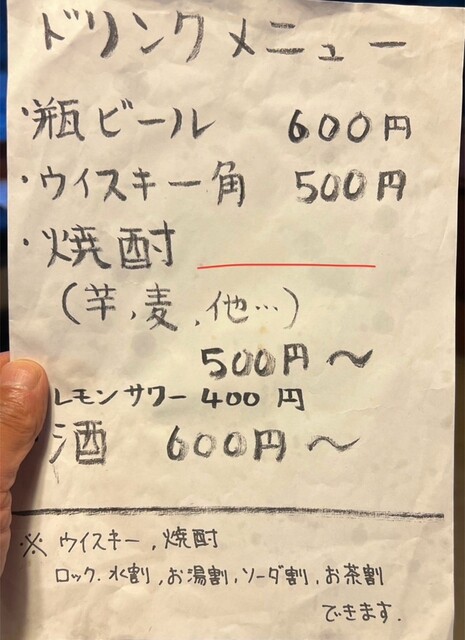 ドリンクメニュー
・瓶ビール 600円
・ウイスキー角 500円
・焼酎
(芋,麦,他…)
500円〜
レモンサワー 400円
酒 600円〜
※ ウイスキー,焼酎
ロック.水割,お湯割,ソーダ割,お茶割
できます.